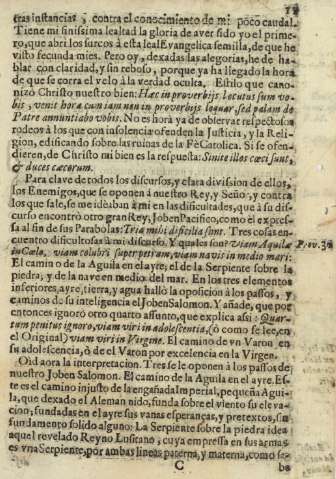 tras instancias, contra el conocimiento de mi poco caudal.
Tiene mi sinissima lealtad la gloria de aver sido yo el prime-
ro, que abri los surcos à esta leal Evangelica semilla, de que he
visto fecunda mies. Pero oy, dexadas las alegorias, he de ha-
blar con claridad, y sin reboso, porque ya ha llegado la hora
de que se corra el velo à la verdad oculta. Estilo que cano-
nizò Christo nuestro bien: Hæc in proverbijs locutus sum vo-
bis, venit hora cum iam non in proverbijs loquar, sed palam de
Patre annuntiabo vobis. No es hora yà de observar respectosos
rodeos à los que con insolencia ofenden la Justicia, y la Reli-
gion, edificando sobre las ruinas de la Fè Catolica. Si se ofen-
dieren, de Christo mi bien es la respuesta: Sinite illos cæci sunt,
& duces cæcorum.
Para clave de todos los discursos, y clara division de ellos,
los Enemigos, que se oponen à nuestro Rey, y Señor, y contra
los que sale, se me idèaban à mi en las dificultades, que à su dis-
curso encontrò otro gran Rey, Joben Pacifico, como èl expres-
sa al fin de sus Parabolas: Tria mihi dificilia sunt. Tres cosas en-
cuentro dificultosas à mi discurso. Y quales son? Viam Aquilæ Prov. 30
in Cœlo, viam colubri super petram, viam navis in medio mari:
El camino de la Aguila en el ayre, el de la Serpiente sobre la
piedra, y de la nave en medio del mar. En los tres elementos
inferiores, ayre, tierra, y agua hallò la oposicion à los passos, y
caminos de su inteligencia el Joben Salomon. Y añade, que por
entonces ignorò otro quarto assunto, que explica assi: Quar-
tum penitus ignoro, viam viri in adolescentia, (ò como se lee, en
el Original) viam viri in Virgine. El camino de vn Varon en
su adolescencia, ò de el Varon por excelencia en la Virgen.
Oid aora la interpretacion. Tres se le oponen à los passos de
nuestro Joben Salomon. El camino de la Aguila en el ayre. Es-
te es el camino injusto de la engañada Imperial, pequeña Agui-
la, que dexado el Aleman nido, funda sobre el viento su eleva-
cion, fundadas en el ayre sus vanas esperanças, y pretextos, sin
fundamento solido alguno: La Serpiente sobre la piedra idea
aquel revelado Reyno Lusitano, cuya empressa en sus armas
es vna Serpiente, por ambas lineas paterna, y materna, como se-
C